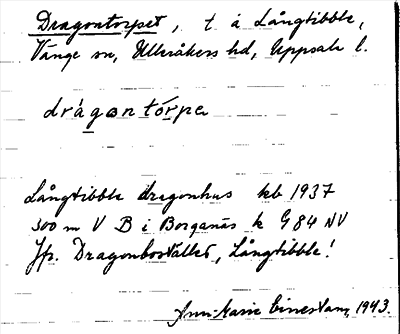 Dragontorpet, t å Långtibble,
Vänge sn, Ulleråkers hd, Uppsala l.
drágontórpe
Långtibble dragonhus kb 1937
300 m V B i Borganäs k G 84 NV
Jfr. Dragonbostället, Långtibble!
Ann-Marie 1943.